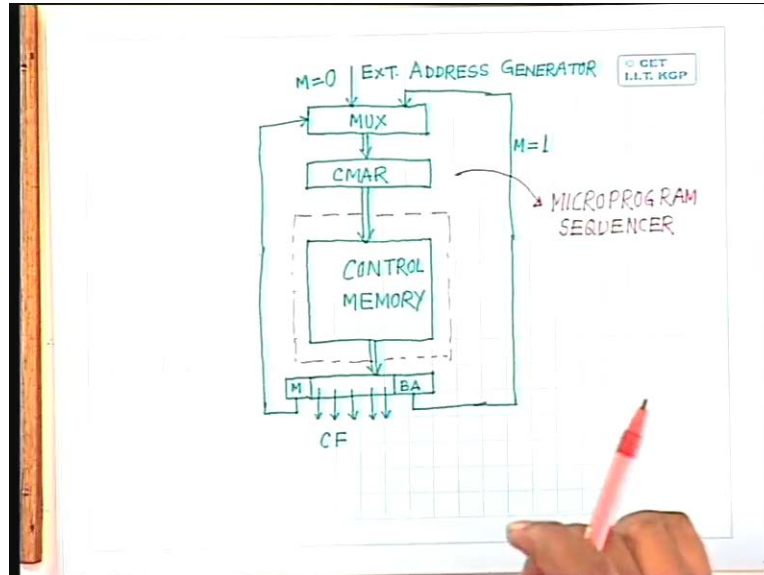 M=0
EXT. ADDRESS GENERATOR
© CET
I.I.T. KGP
MUX
M=1
CMAR
MICROPROGRAM
SEQUENCER
CONTROL
MEMORY
M
BA
CF